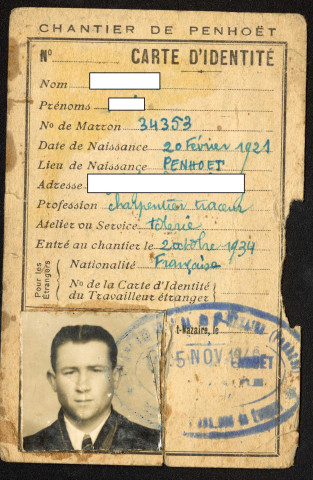 CHANTIER DE PENHOËT
N° CARTE D'IDENTITÉ
Nom
Prénoms
No de Marron 34353
Date de Naissance 20 Février 1921
Lieu de Naissance PENHOET
Adresse
Profession charpentier traceur
Atelier ou Service tôlerie
Entré au chantier le 2 octobre 1934
Pour les Étrangers
Nationalité Française
No de la Carte d'Identité du Travailleur étranger
t-Nazaire, le
5 NOV